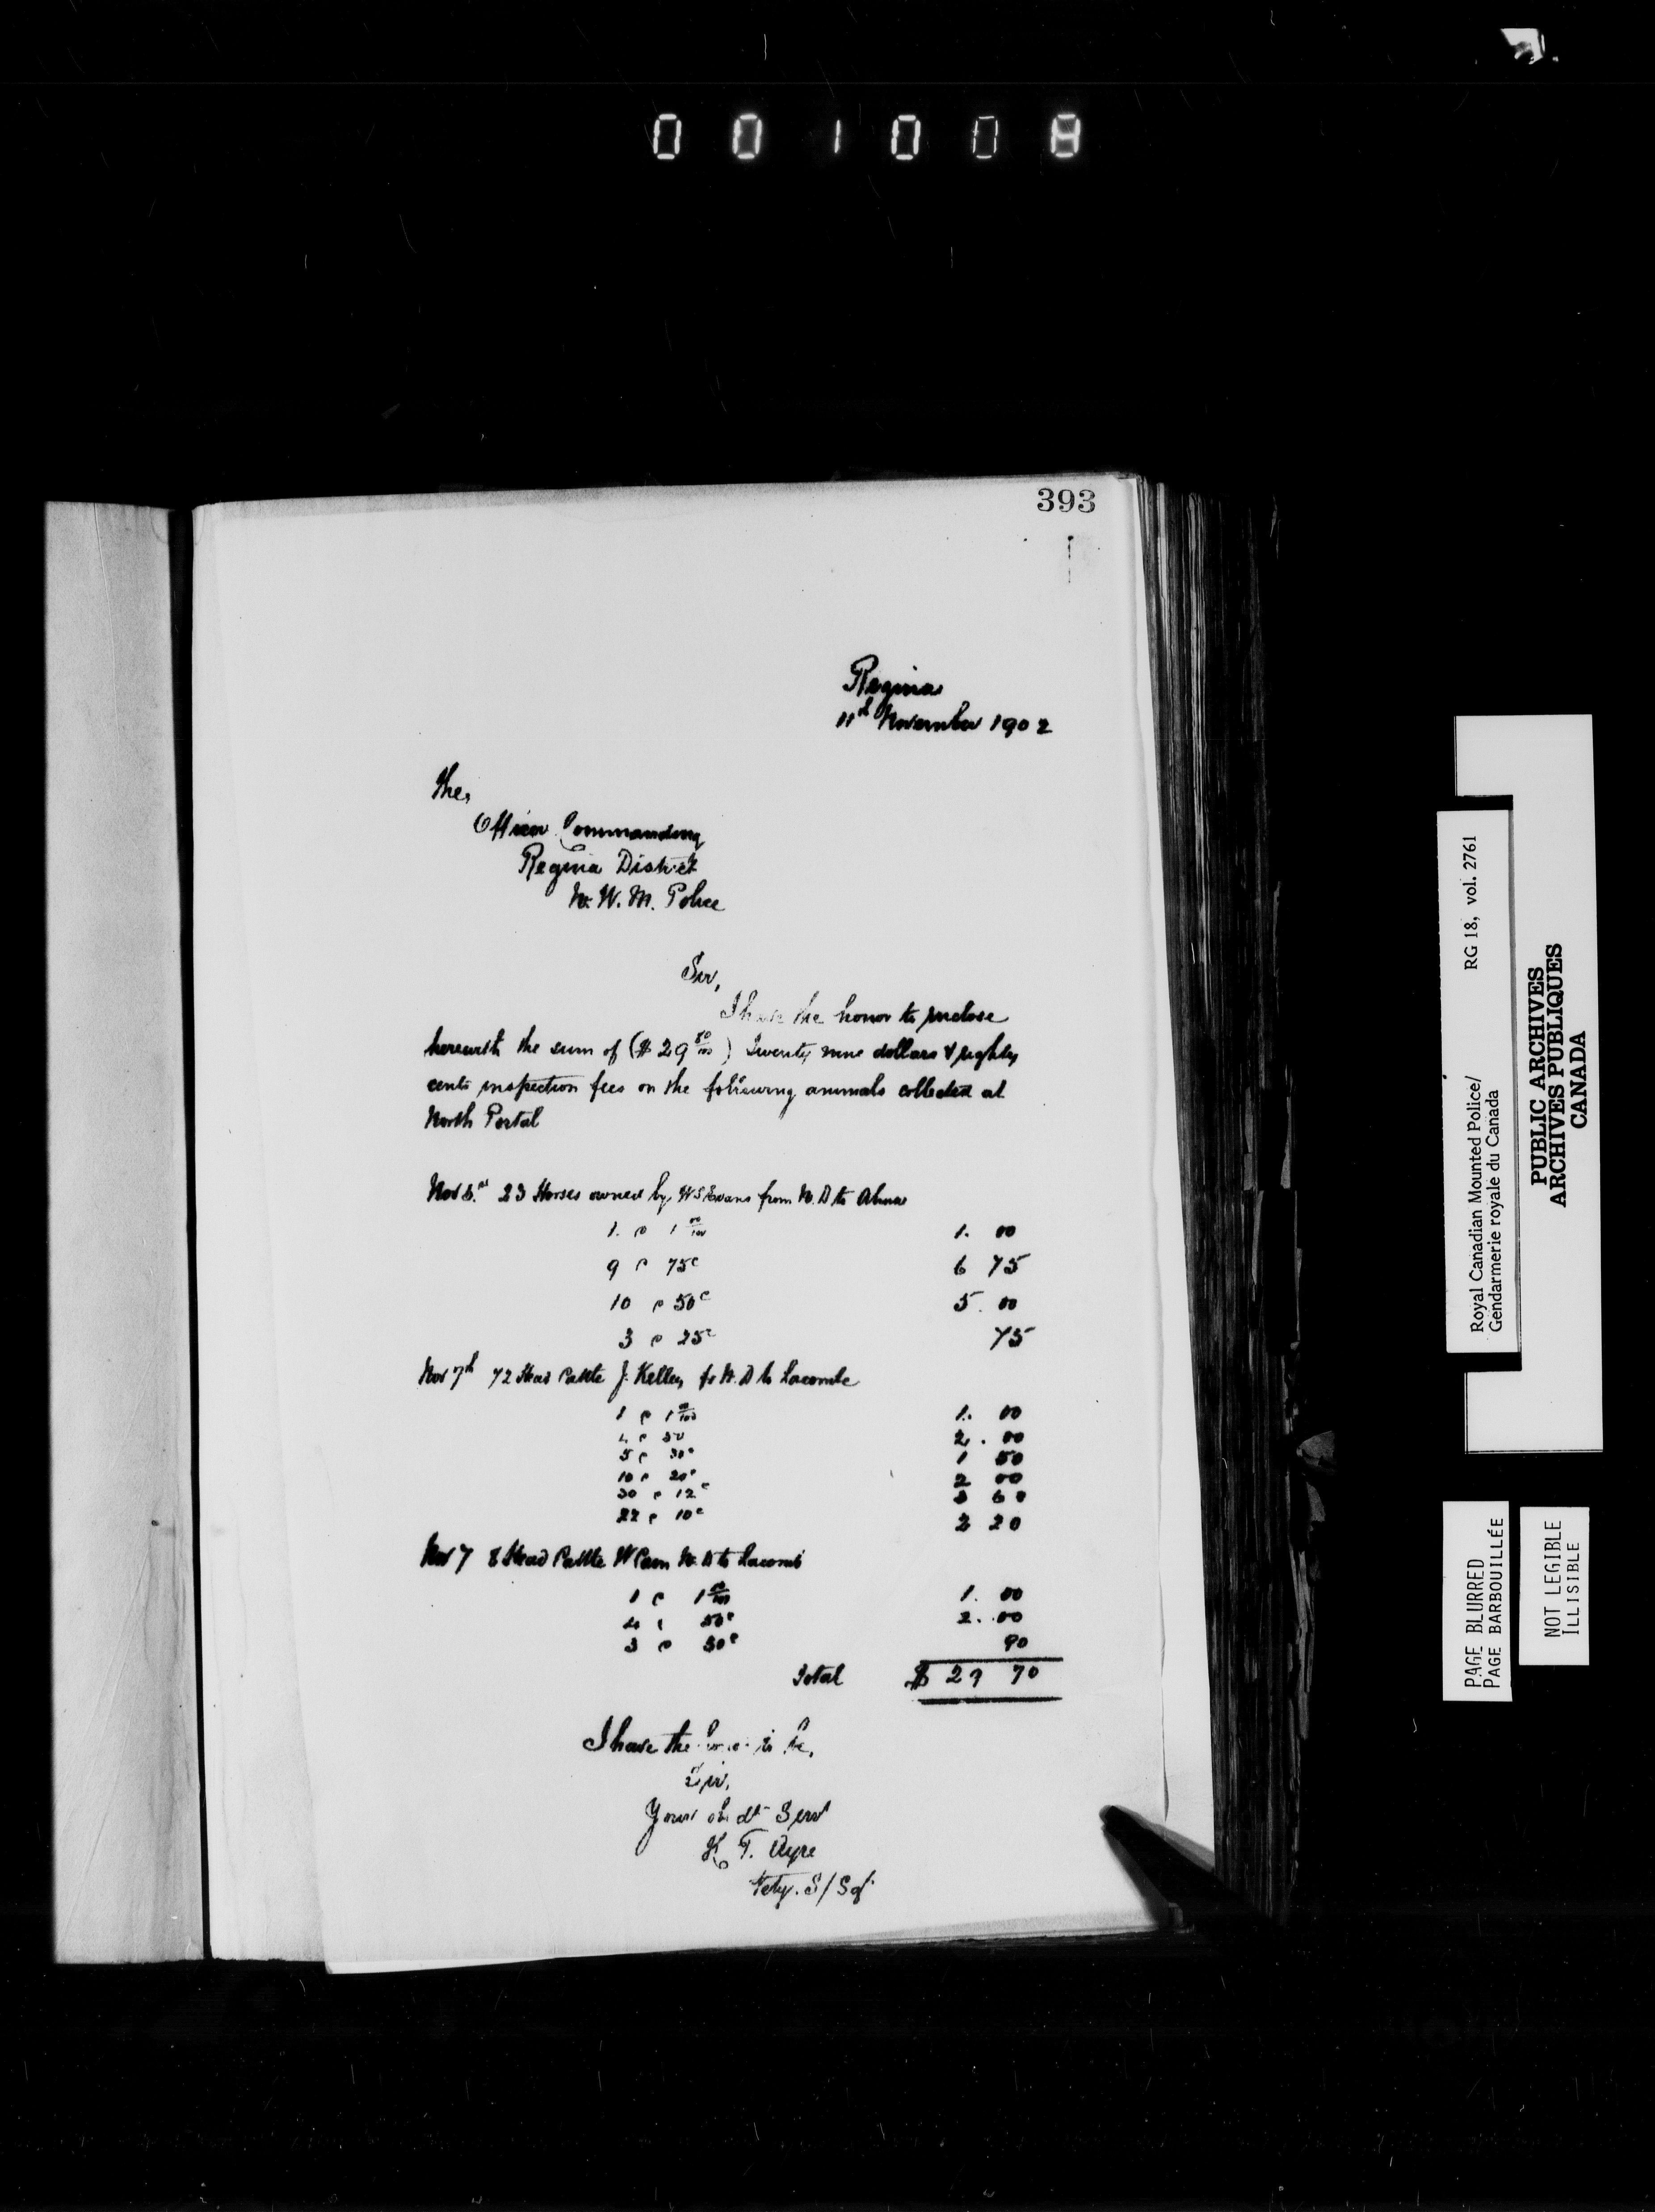 001008
393
Regina
11th November 1902
The,
Officer Commanding
Regina District
N. W. M. Police
Sir,
I have the honor to enclose
herewith the sum of ($ 29 80/100) Twenty nine dollars & eighty
cents inspection fees on the following animals collected at
North Portal
Nov 23 Horses owned by W S Evans from N. D to
1. @ 1 00/100 1. 00
9 @ 75c 6 75
10 @ 50c 5. 00
3 @ 25c 75
Nov 7th 72 Head Cattle J. Kelley fr N. D to Lacombe
1 @ 1 00/100 1. 00
4 @ 50 2. 00
5 @ 30c 1 50
10 @ 20c 2 00
30 @ 12c 3 60
22 @ 10c 2 20
Nov 7 8 Head Cattle W N. D to Lacomb
1 @ 1 00/100 1. 00
4 @ 50c 2. 00
3 @ 30c 90
Total $ 29 70
I have the honor to be,
Sir,
Your obdt Servt
T. Ayre
Vety. S/Sgt
Royal Canadian Mounted Police/ RG 18, vol. 2761
Gendarmerie royale du Canada
PUBLIC ARCHIVES
ARCHIVES PUBLIQUES
CANADA
PAGE BLURRED
PAGE BARBOUILLÉE
NOT LEGIBLE
ILLISIBLE